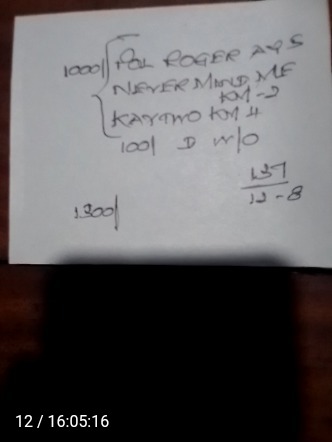 1000/ POL ROGER AQS
NEVER MIND ME
KM-2
KAYTWO KM 4
100/ D W/O
137
12-8
1300/
12 / 16:05:16